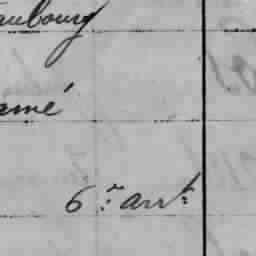 aubourg
amé
6.e arr.t